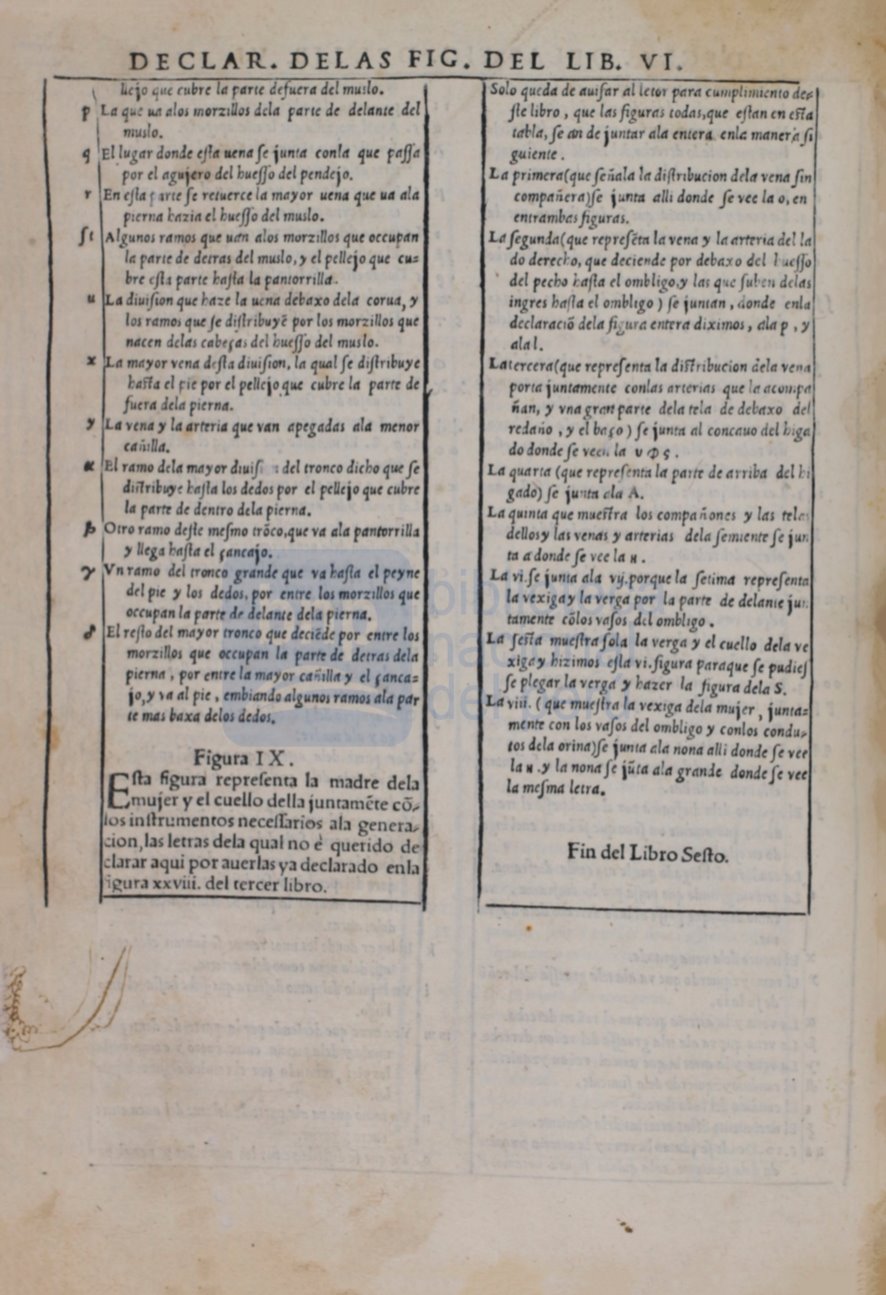 DECLAR. DELAS FIG. DEL LIB. VI.
llejo que cubre la parte defuera del muslo.
p La que ua alos morzillos dela parte de delante del
muslo.
q El lugar donde eſta uena ſe junta conla que paſſa
por el agujero del hueſſo del pendejo.
r En eſta parte ſe retuerce la mayor uena que ua ala
pierna hazia el hueſſo del muslo.
ſt Algunos ramos que uan alos morzillos que occupan
la parte de detras del muslo, y el pellejo que cu=
bre eſta parte haſta la pantorrilla.
u La diuiſion que haze la uena debaxo dela corua, y
los ramos que ſe diſtribuyẽ por los morzillos que
nacen delas cabeças del hueſſo del muslo.
x La mayor vena deſta diuiſion, la qual ſe diſtribuye
haſta el pie por el pellejo que cubre la parte de
fuera dela pierna.
y La vena y la arteria que van apegadas ala menor
cañilla.
α El ramo dela mayor diuiſ del tronco dicho que ſe
diſtribuye haſta los dedos por el pellejo que cubre
la parte de dentro dela pierna.
β Otro ramo deſte meſmo trõco, que va ala pantorrilla
y llega haſta el çancajo.
γ Vn ramo del tronco grande que va haſta el peyne
del pie y los dedos, por entre los morzillos que
occupan la parte de delante dela pierna.
δ El reſto del mayor tronco que deciẽde por entre los
morzillos que occupan la parte de detras dela
pierna, por entre la mayor cañilla y el çanca=
jo, y va al pie, embiando algunos ramos ala par
te mas baxa delos dedos.
Figura IX.
Eſta figura repreſenta la madre dela
mujer y el cuello della juntamẽte cõ=
los inſtrumentos neceſſarios ala genera=
cion, las letras dela qual no è querido de
clarar aqui por auerlas ya declarado enla
figura xxviii. del tercer libro.
Solo queda de auiſar al letor para cumplimiento de=
ſte libro, que las figuras todas, que eſtan en eſta
tabla, ſe an de juntar ala entera enla manera ſi
guiente.
La primera (que ſeñala la diſtribucion dela vena ſin
compañera) ſe junta alli donde ſe vee la o, en
entrambas figuras.
La ſegunda (que repreſẽta la vena y la arteria del la
do derecho, que deciende por debaxo del hueſſo
del pecho haſta el ombligo, y las que ſuben delas
ingres haſta el ombligo) ſe juntan, donde enla
declaraciõ dela figura entera diximos, ala p, y
ala l.
La tercera (que repreſenta la diſtribucion dela vena
porta juntamente conlas arterias que la acompa
ñan, y vna gran parte dela tela de debaxo del
redaño, y el baço) ſe junta al concauo del higa
do donde ſe veen la υ φ ς.
La quarta (que repreſenta la parte de arriba del hi
gado) ſe junta ala A.
La quinta que mueſtra los compañones y las telas
dellos y las venas y arterias dela ſemiente ſe jun
ta a donde ſe vee la ϰ.
La vi. ſe junta ala vij. porque la ſetima repreſenta
la vexiga y la verga por la parte de delante jun
tamente cõlos vaſos del ombligo.
La ſeſta mueſtra ſola la verga y el cuello dela ve
xiga y hizimos eſta vi. figura paraque ſe pudieſ
ſe plegar la verga y hazer la figura dela S.
La viii. (que mueſtra la vexiga dela mujer, junta=
mente con los vaſos del ombligo y conlos condu=
tos dela orina) ſe junta ala nona alli donde ſe vee
la ϰ. y la nona ſe jũta ala grande donde ſe vee
la meſma letra.
Fin del Libro Seſto.